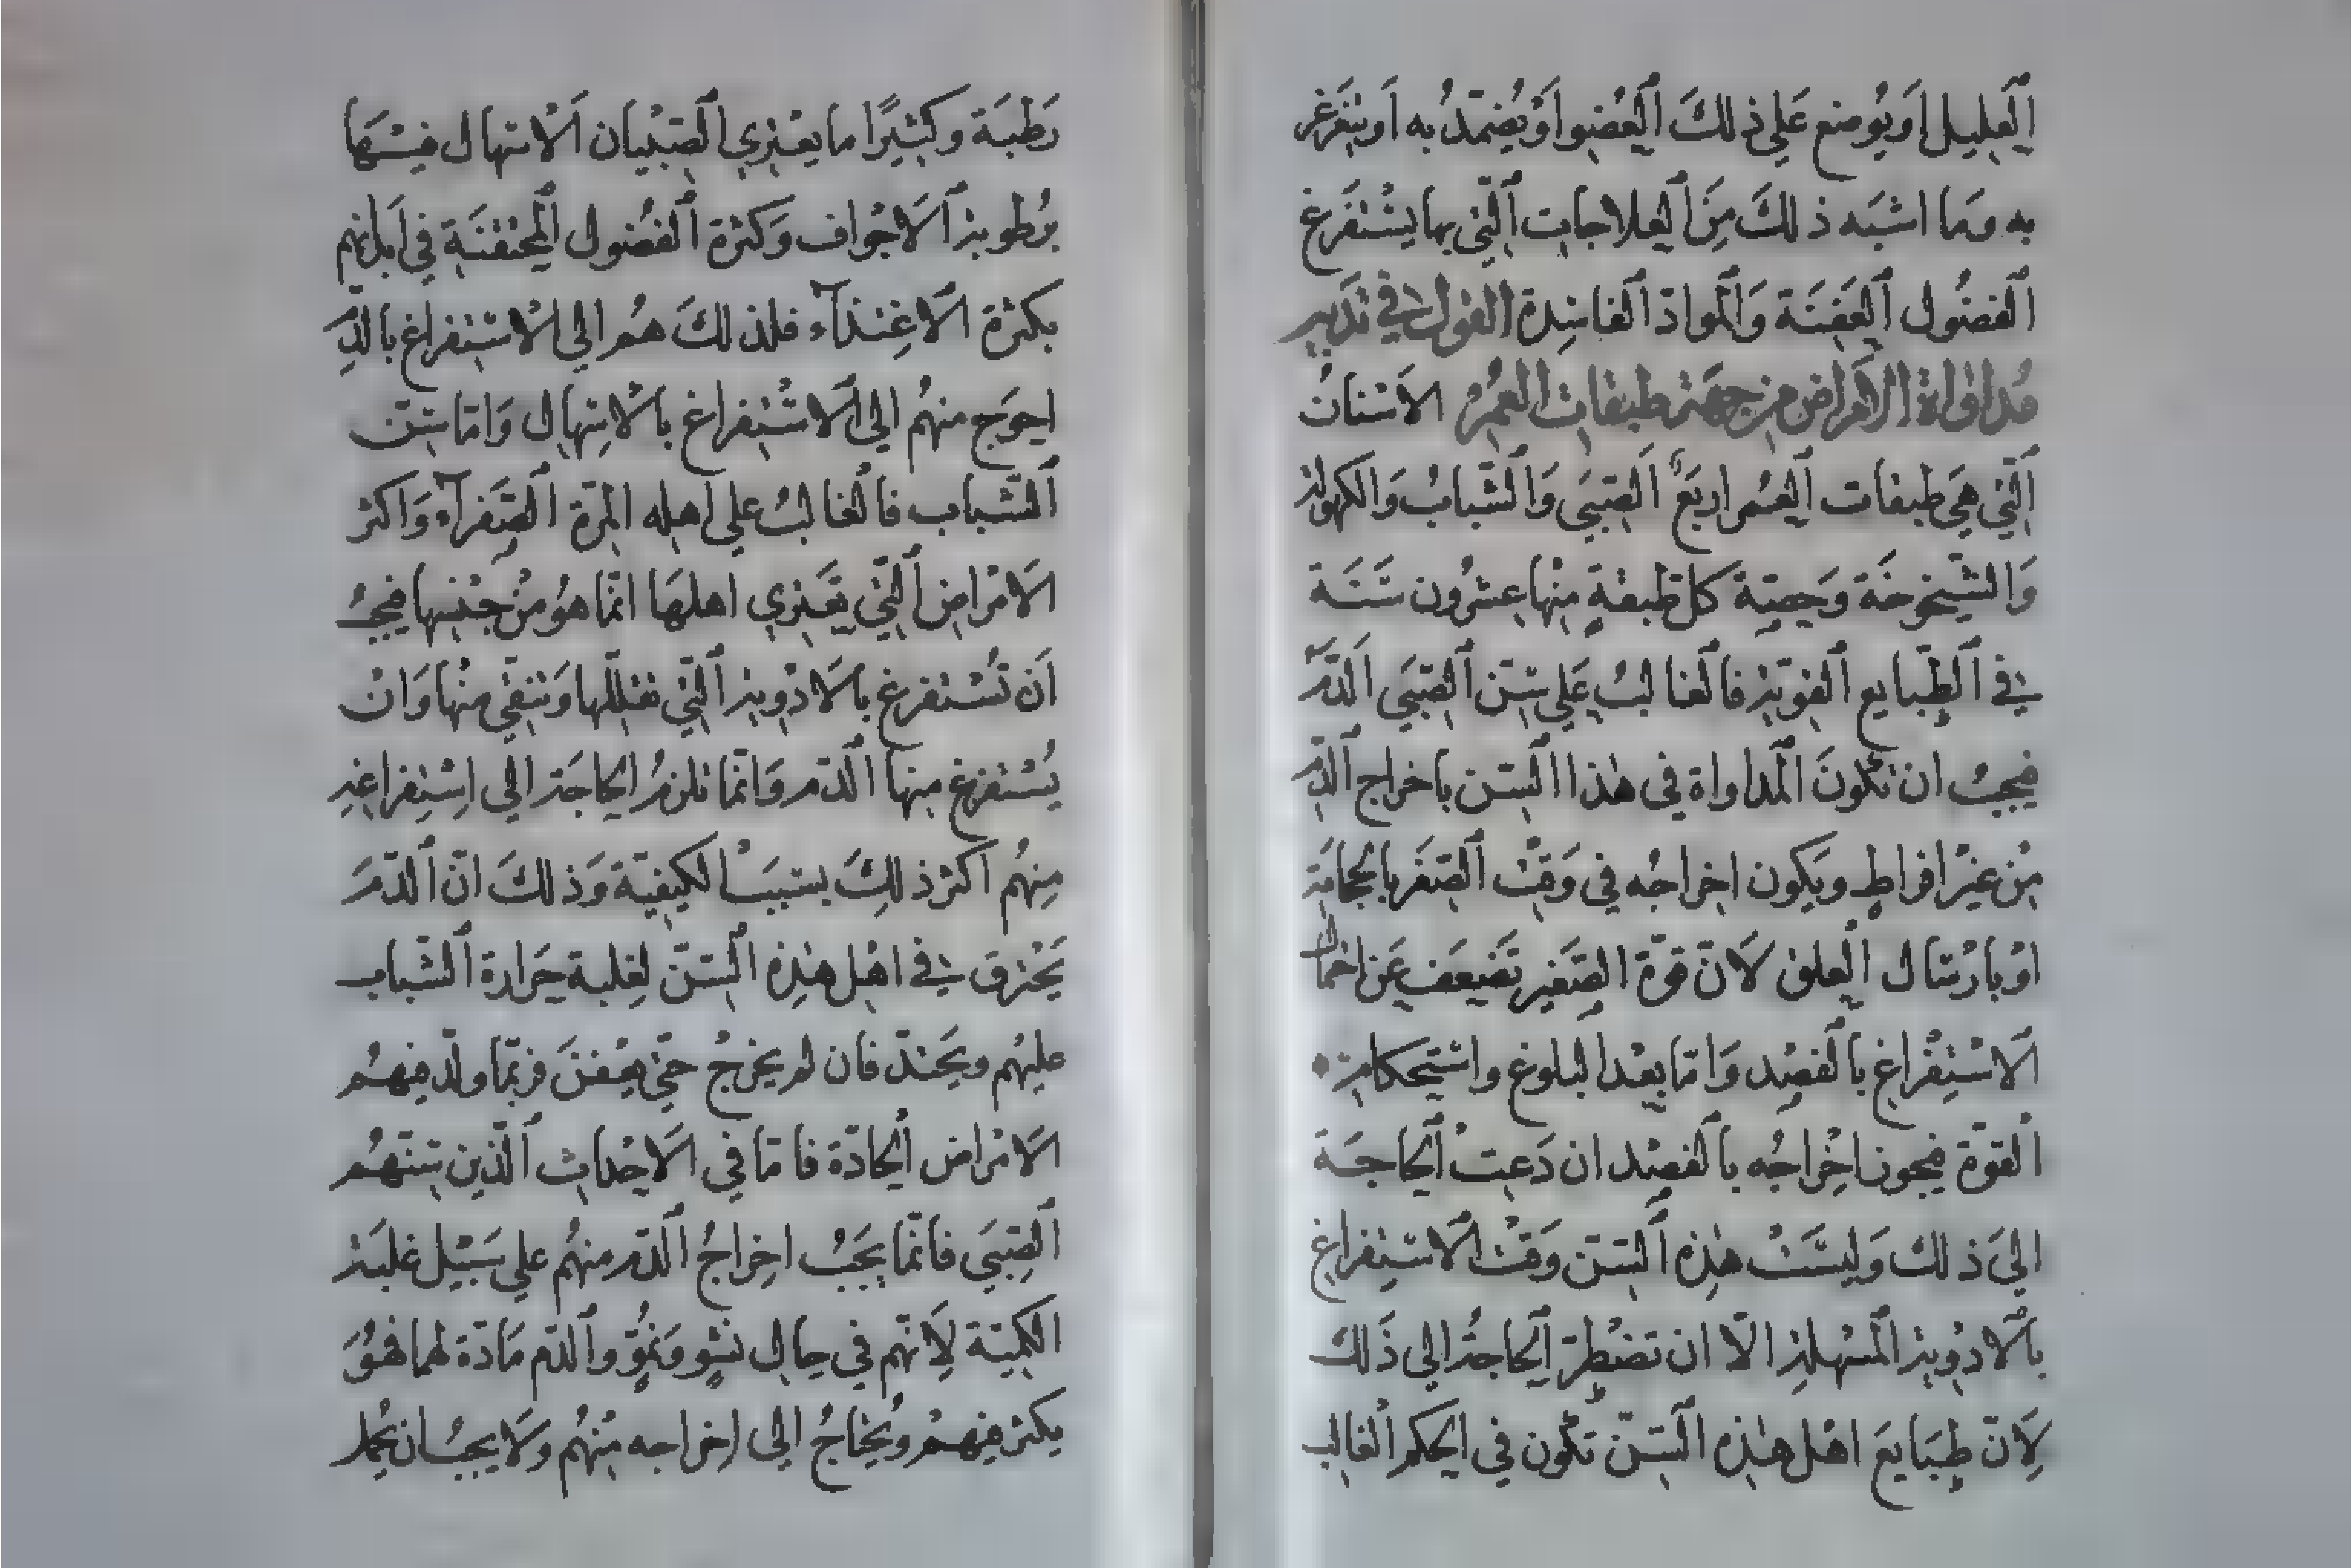 العليل او يوضع على ذلك العضو او يضمد به او يتغرغر
به وما اشبه ذلك من العلاجات التي بها يستفرغ
الفضول العفنة والمواد الفاسدة القول في تدبير
مداواة الامراض من جهة طبقات العمر الاسنان
التي هي طبقات العمر اربع الصبي والشباب والكهولة
والشيخوخة وحصة كل طبقة منها عشرون سنة
في الطبايع القوية فالغالب على سن الصبي الدم
فيجب ان تكون المداواة في هذا السن باخراج الدم
من غير افراط ويكون اخراجه في وقت الصغر بالحجامة
او بارسال العلق لان قوة الصغير تضعف عن احتمال
الاستفراغ بالفصد واما بعد البلوغ واستحكام
القوة فيجوز اخراجه بالفصد ان دعت الحاجة
الى ذلك وليست هذه السن وقت الاستفراغ
بالادوية المسهلة الا ان تضطر الحاجة الى ذلك
لان طبايع اهل هذه السن تكون في الحكم الغالب
رطبة وكثيرا ما يعتري الصبيان الاسهال فيسها
برطوبة الاجواف وكثرة الفضول المحتقنة في ابدانهم
بكثرة الاغتذاء فلذلك هم الى الاستفراغ بالدم
احوج منهم الى الاستفراغ بالاسهال واما سن
الشباب فالغالب على اهله المرة الصفراء واكثر
الامراض التي تعتري اهلها انما هو من جنسها فيجب
ان تستفرغ بالادوية التي تقللها وتنقي منها وان
يستفرغ منها الدم وانما تلزم الحاجة الى استفراغه
منهم اكثر ذلك بسبب الكيفية وذلك ان الدم
يحترق في اهل هذه السن لغلبة حرارة الشباب
عليهم ويحتد فان لم يخرج حتى يعفن فربما ولد فيهم
الامراض الحادة فاما في الاحداث الذين سنهم
الصبي فانما يجب اخراج الدم منهم على سبيل غلبة
الكمية لانهم في حال نشو ونمو والدم مادة لهما فهو
يكثر فيهم ويحتاج الى اخراجه منهم ولا يجب ان يحمل